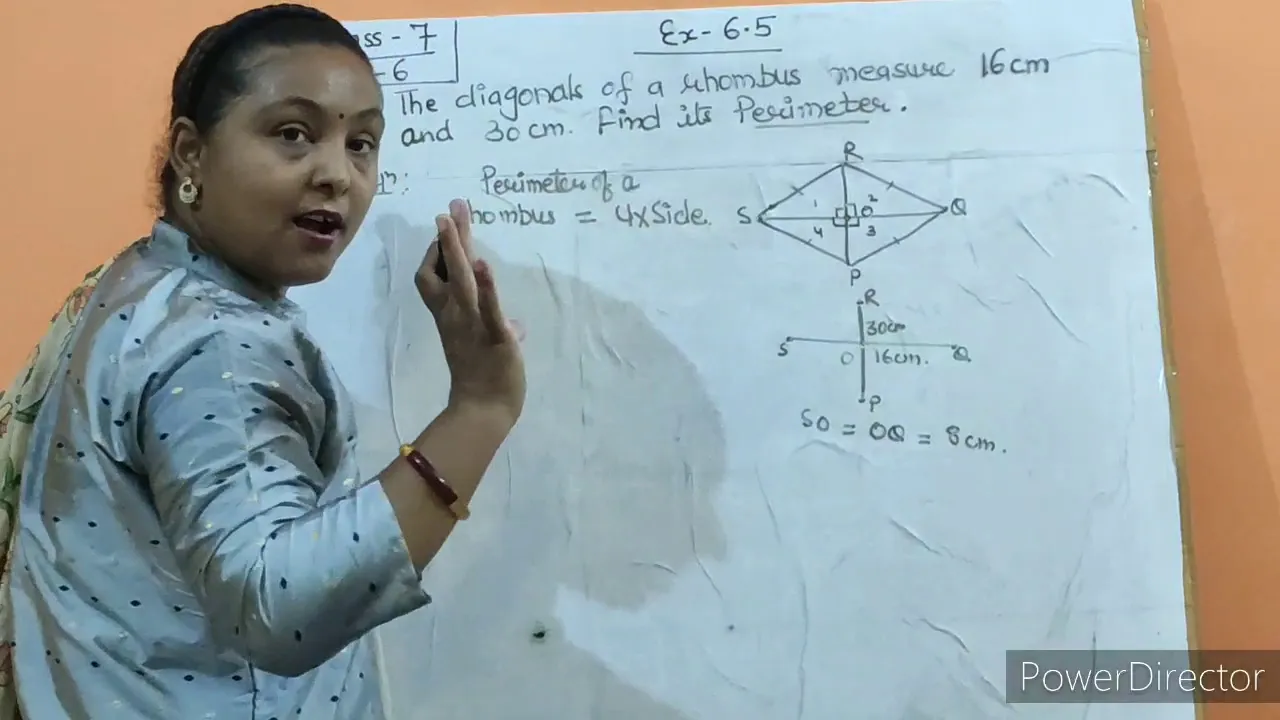 ss - 7
- 6
Ex - 6.5
The diagonals of a rhombus measure 16cm
and 30cm. Find its Perimeter.
Perimeter of a
hombus = 4xSide.
R
S
1
2
O
Q
4
3
P
R
30cm
S
O
16cm.
Q
P
SO = OQ = 8cm.
PowerDirector